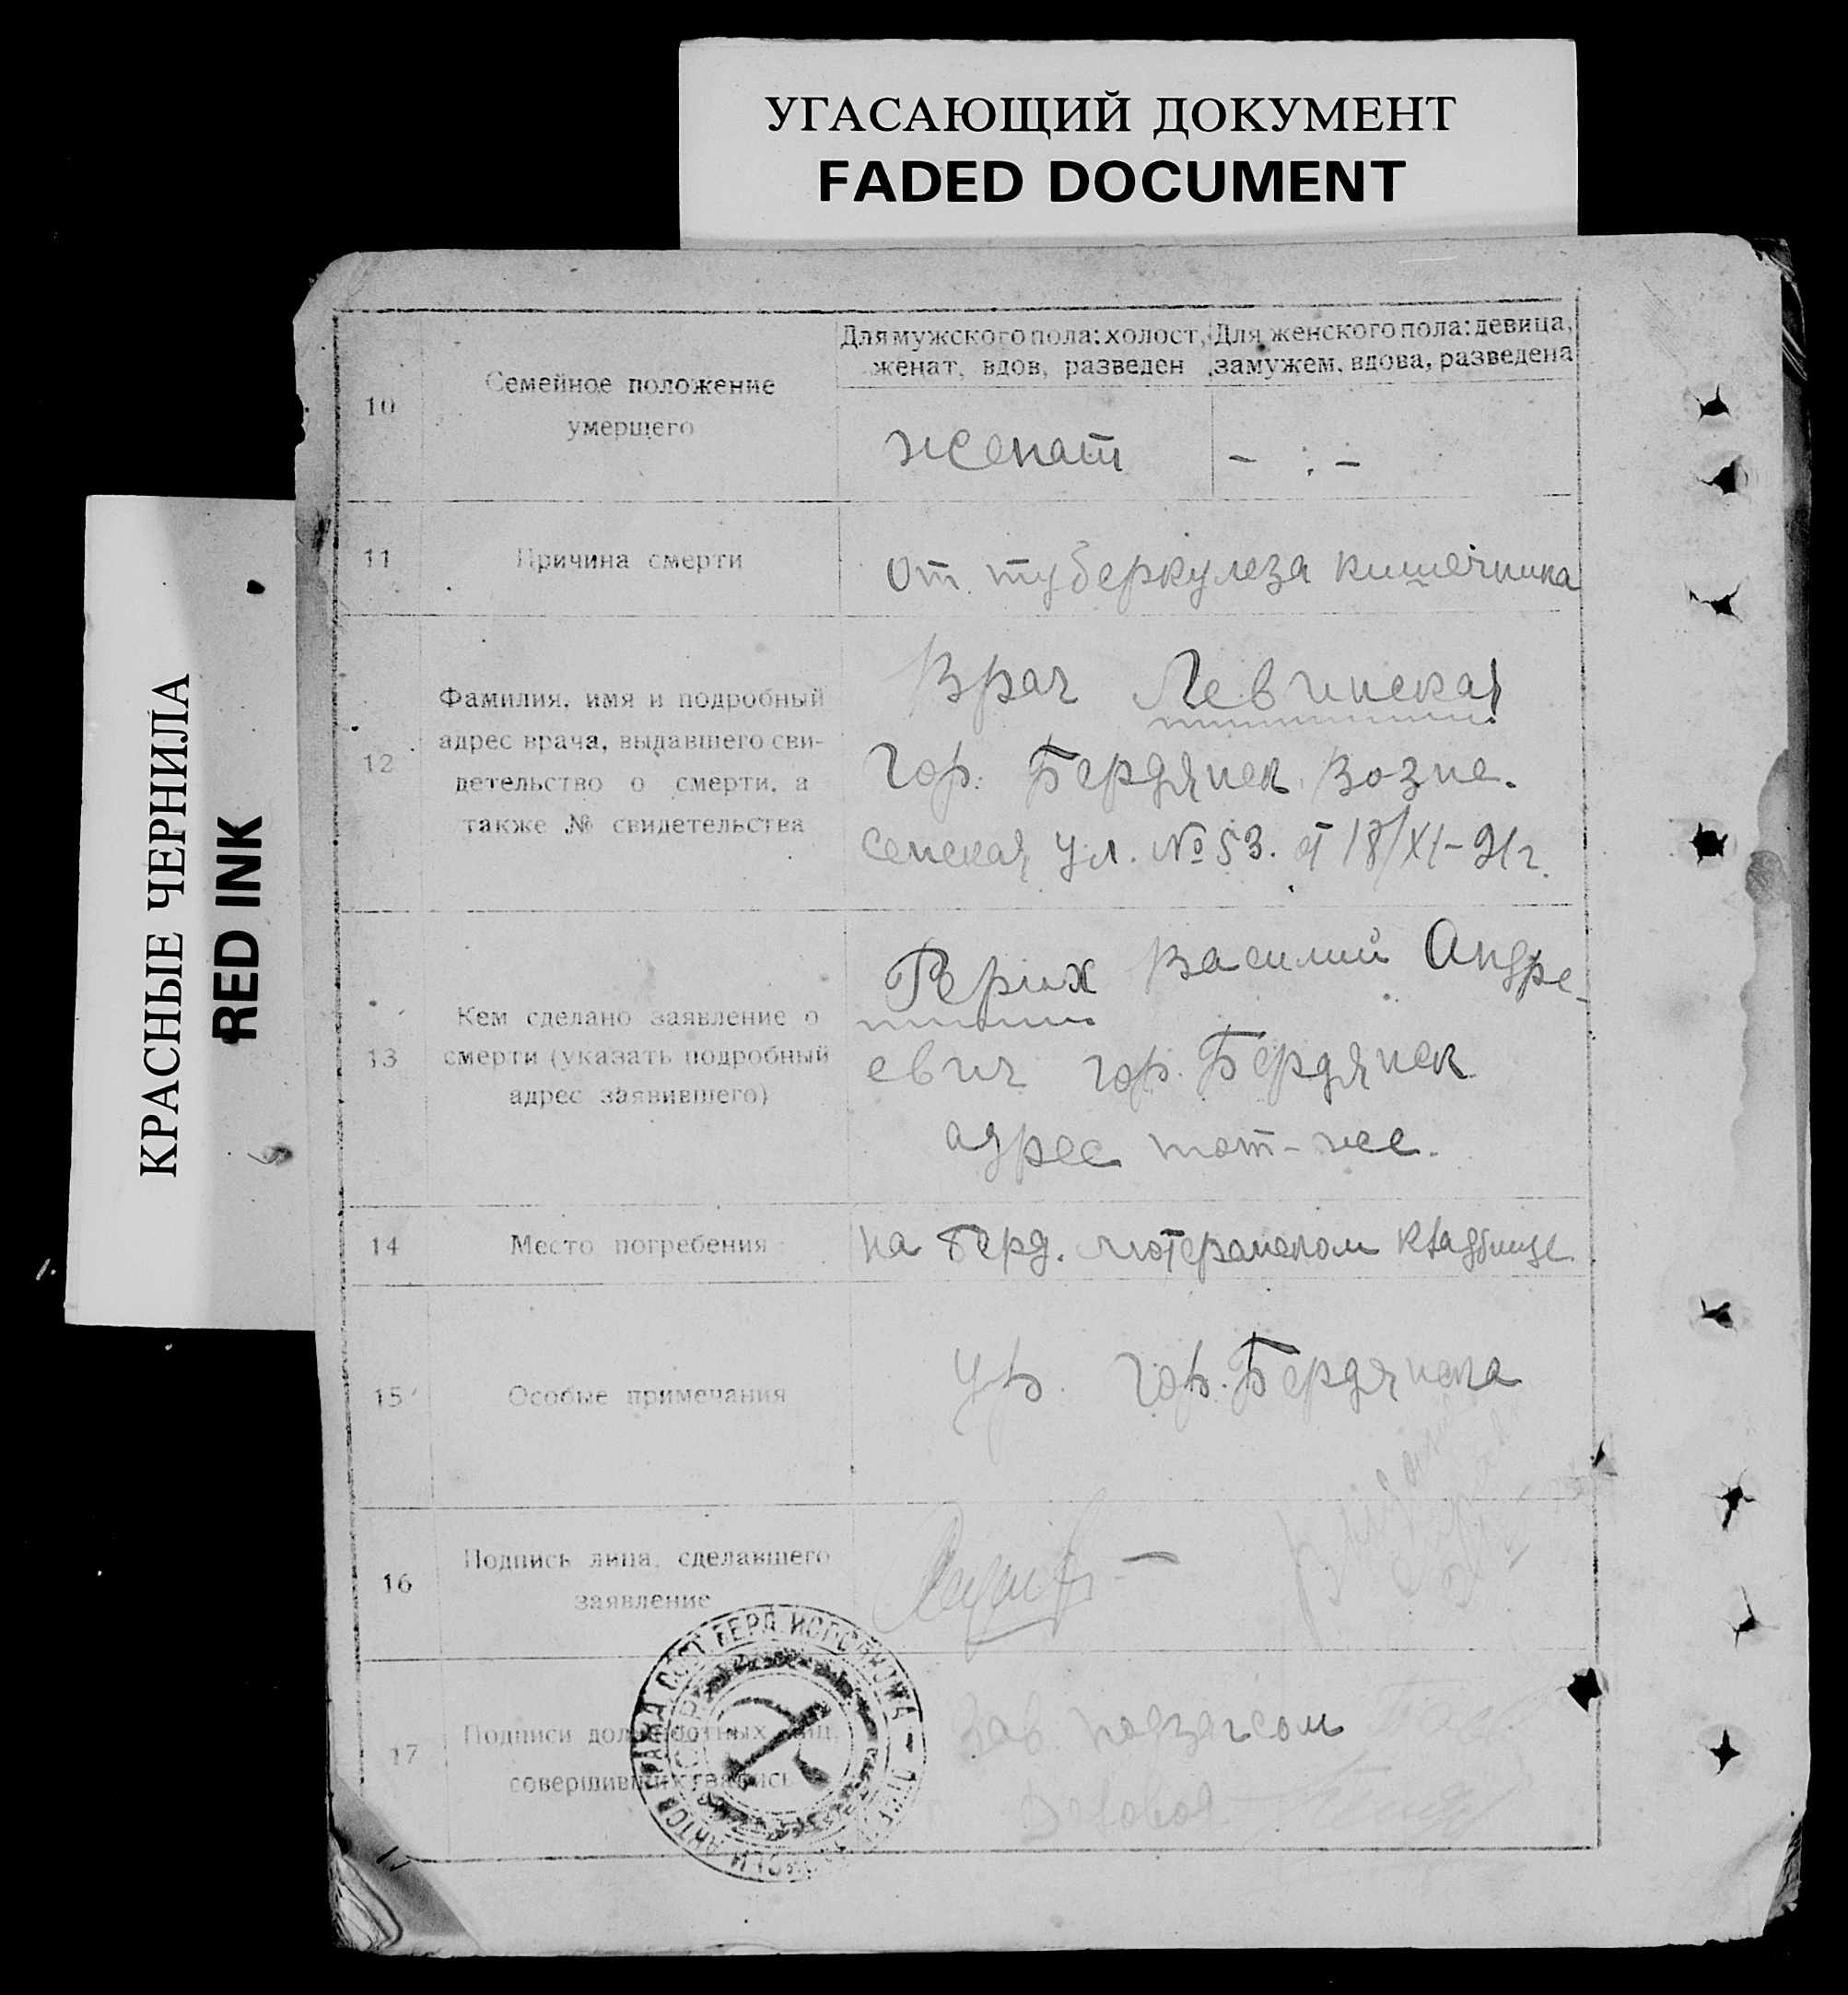 УГАСАЮЩИЙ ДОКУМЕНТ
FADED DOCUMENT
КРАСНЫЕ ЧЕРНИЛА
RED INK
10
Семейное положение
умершего
Для мужского пола: холост,
женат, вдов, разведен
Для женского пола: девица,
замужем, вдова, разведена
женат
- : -
11
Причина смерти
от туберкулеза кишечника
12
Фамилия, имя и подробный
адрес врача, выдавшего сви-
детельство о смерти, а
также № свидетельства
Врач Левинская
гор. Бердянск Возне-
сенская ул. № 53. от 18/XI-21г.
13
Кем сделано заявление о
смерти (указать подробный
адрес заявившего)
Рерих Василий Андре-
евич гор. Бердянск
адрес тот-же.
14
Место погребения
на Берд. лютеранском кладбище
15
Особые примечания
ур. гор. Бердянска
16
Подпись лица, сделавшего
заявление
17
Подписи должностных лиц,
совершивших запись
Зав. подзагсом